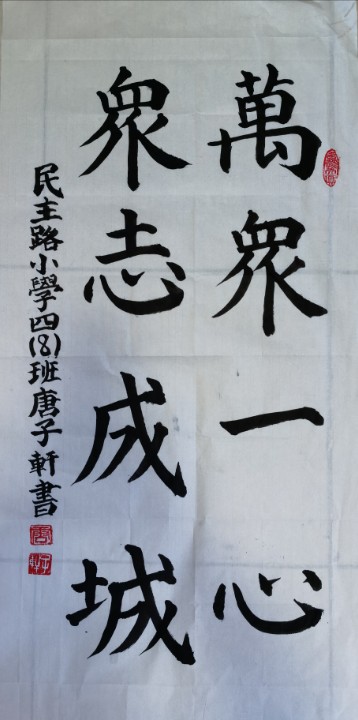 萬眾一心
眾志成城
民主路小學四(8)班唐子軒書